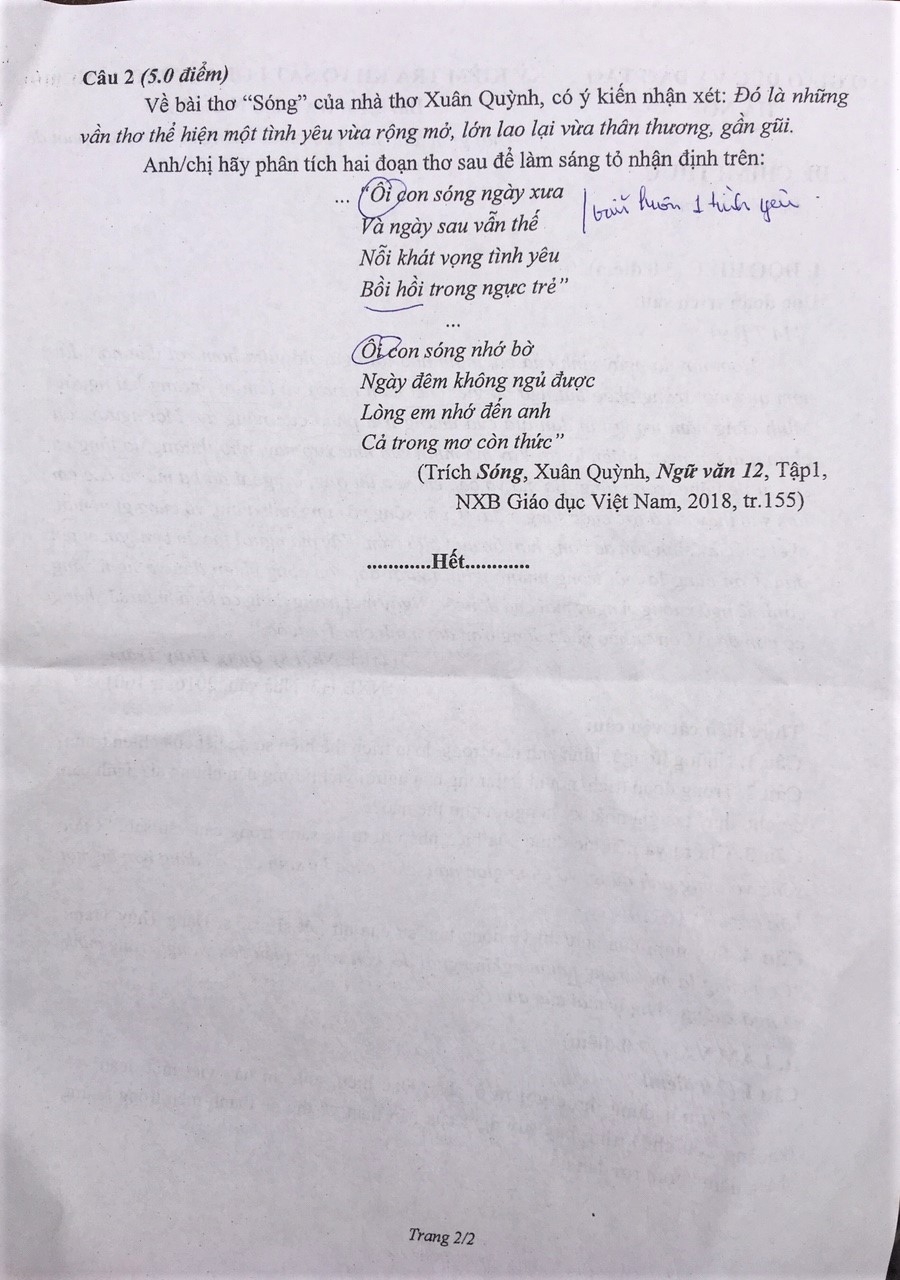 Câu 2 (5.0 điểm)
Về bài thơ “Sóng” của nhà thơ Xuân Quỳnh, có ý kiến nhận xét: Đó là những
vần thơ thể hiện một tình yêu vừa rộng mở, lớn lao lại vừa thân thương, gần gũi.
Anh/chị hãy phân tích hai đoạn thơ sau để làm sáng tỏ nhận định trên:
... “Ôi con sóng ngày xưa
Và ngày sau vẫn thế
Nỗi khát vọng tình yêu
Bồi hồi trong ngực trẻ”
1 tình yêu
...
Ôi con sóng nhớ bờ
Ngày đêm không ngủ được
Lòng em nhớ đến anh
Cả trong mơ còn thức”
(Trích Sóng, Xuân Quỳnh, Ngữ văn 12, Tập1,
NXB Giáo dục Việt Nam, 2018, tr.155)
............Hết............
Trang 2/2